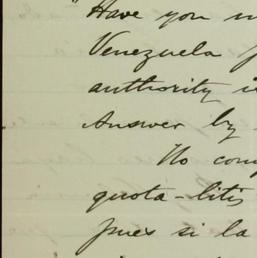 "Have you
Venezuela
authority
Answer by
No
quota-litis
pues si la